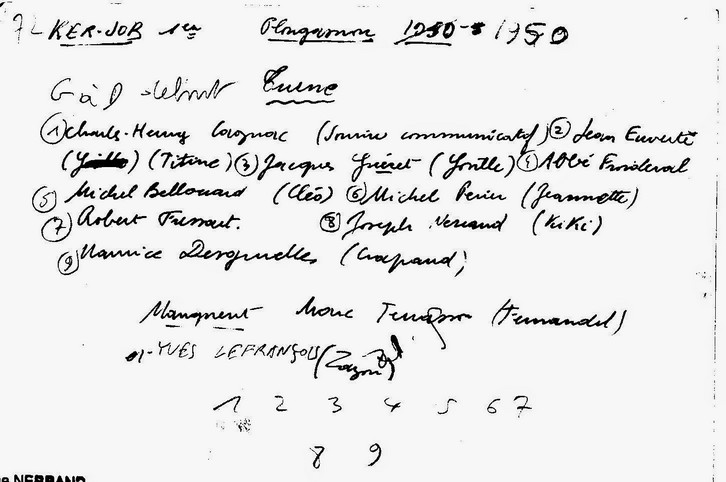 72 KER-JOB 1er Plougasnou 1950-5 1950
G à D debout Turne
① Charles-Henry Cognac (Sourire communicatif) ② Jean Euverte
(Titine) ③ Jacques Guéret (Youtte) ④ Abbé Froideval
⑤ Michel Bellouard (Cléo) ⑥ Michel Perier (Jeannette)
⑦ Robert Fressart. ⑧ Joseph Nerrand (KiKi)
⑨ Maurice Desgruelles (Crapaud)
Manquent Marc Terrasson (Fernandel)
YVES LEFRANÇOIS
1 2 3 4 5 6 7
8 9
NERRAND